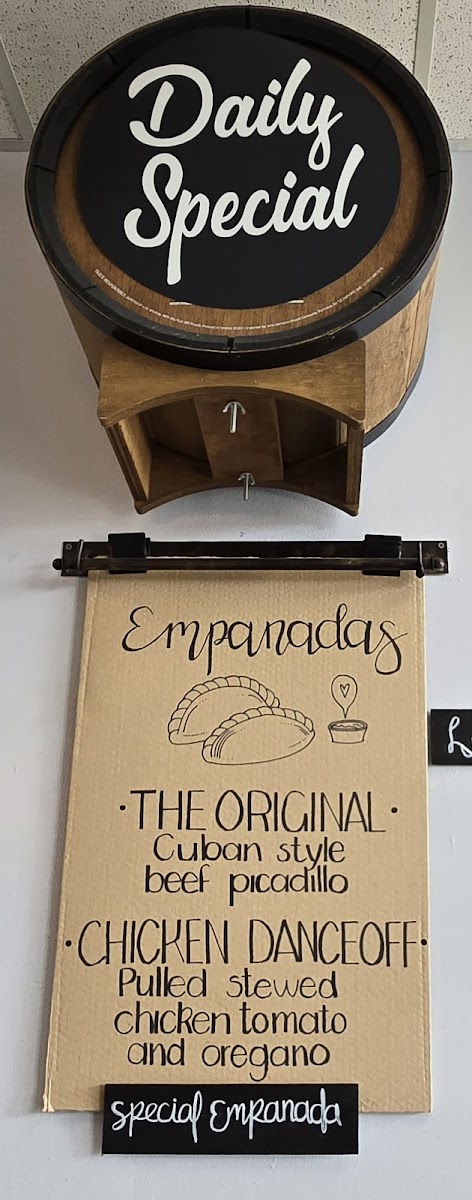 Daily
Special
Empanadas
• THE ORIGINAL •
Cuban style
beef picadillo
• CHICKEN DANCEOFF •
Pulled stewed
chicken tomato
and oregano
special Empanada